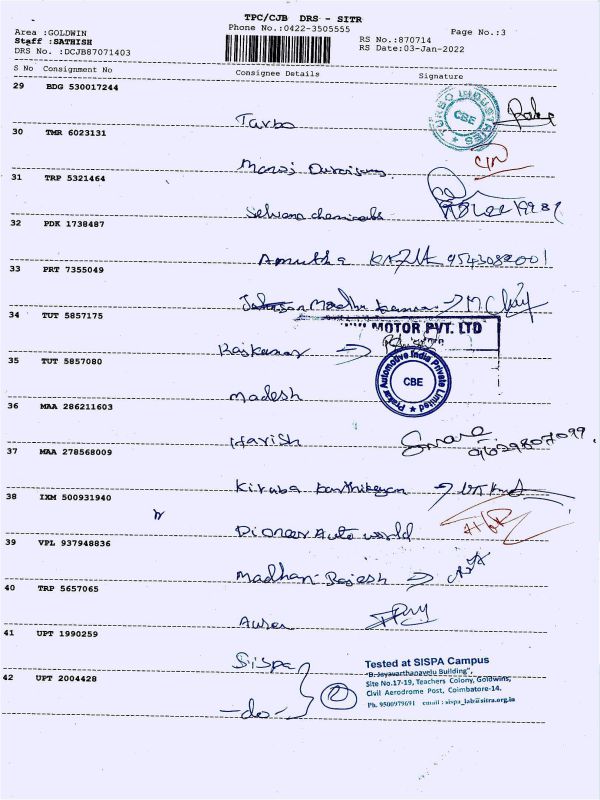 TPC/CJB DRS - SITR
Phone No.:0422-3505555
Page No.:3
Area :GOLDWIN
Staff :SATHISH
DRS No. :DCJB87071403
RS No.:870714
RS Date:03-Jan-2022
S No Consignment No Consignee Details Signature
29 BDG 530017244
Tarbo
TURBO INDUSTRIES
CBE
30 TMR 6023131
Manoj
31 TRP 5321464
Selvana chemicals
32 PDK 1738487
Amutha
33 PRT 7355049
34 TUT 5857175
MOTOR PVT. LTD
Rajkumar
Prakar Automotive India Private Limited
CBE
35 TUT 5857080
Madesh
36 MAA 286211603
Harish
9629807099
37 MAA 278568009
Kiruba Karthikeyan
38 IXM 500931940
Pioneer Auto world
39 VPL 937948836
Madhan Rajesh
40 TRP 5657065
41 UPT 1990259
Sispa
42 UPT 2004428
-do-
2
Tested at SISPA Campus
"D. Jayavarthanavelu Building",
Site No.17-19, Teachers Colony, Goldwins,
Civil Aerodrome Post, Coimbatore-14.
Ph. 9500979691 email : sispa_lab@sitra.org.in